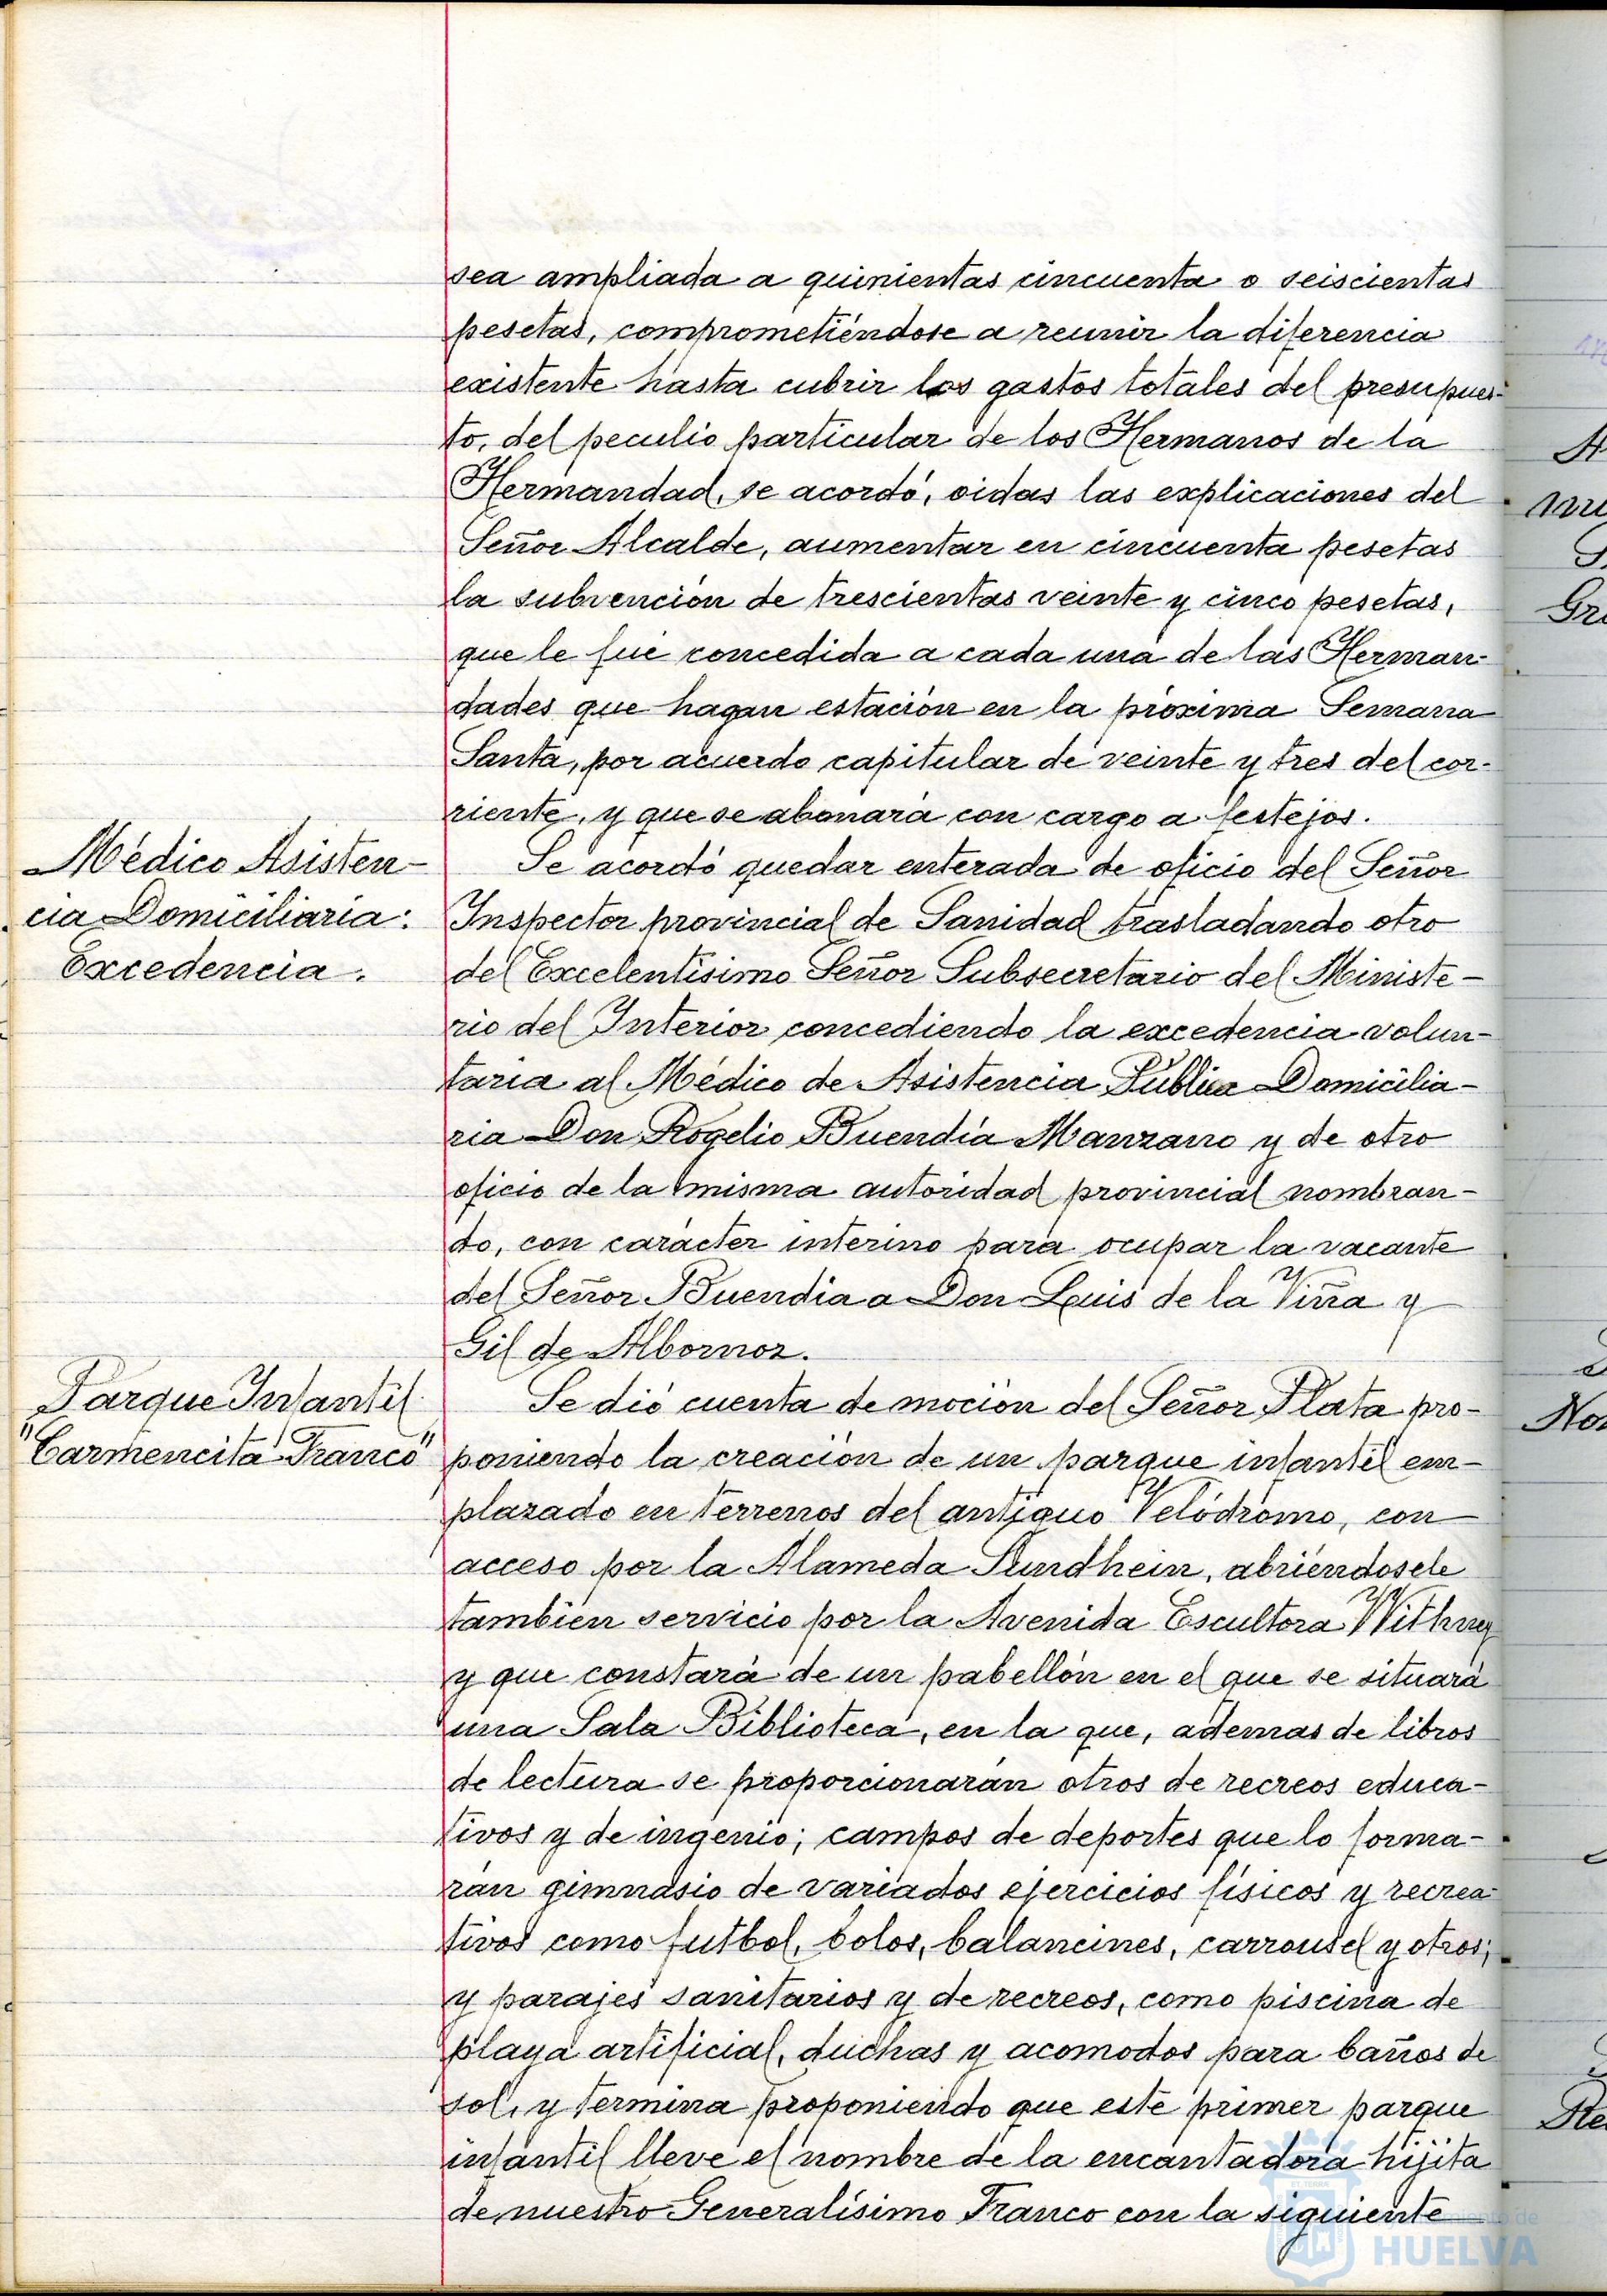 sea ampliada a quinientas cincuenta o seiscientas
pesetas, comprometiéndose a reunir la diferencia
existente hasta cubrir los gastos totales del presupues-
to, del peculio particular de los Hermanos de la
Hermandad, se acordó, oidas las explicaciones del
Señor Alcalde, aumentar en cincuenta pesetas
la subvención de trescientas veinte y cinco pesetas,
que le fué concedida a cada una de las Herman-
dades que hagan estación en la próxima Semana
Santa, por acuerdo capitular de veinte y tres del cor-
riente, y que se abonará con cargo a festejos.
Médico Asisten-
cia Domiciliaria:
Excedencia.
Se acordó quedar enterada de oficio del Señor
Inspector provincial de Sanidad trasladando otro
del Excelentísimo Señor Subsecretario del Ministe-
rio del Interior concediendo la excedencia volun-
taria al Médico de Asistencia Pública Domicilia-
ria Don Rogelio Buendía Manzano y de otro
oficio de la misma autoridad provincial nombran-
do, con carácter interino para ocupar la vacante
del Señor Buendía a Don Luis de la Viña y
Gil de Albornoz.
Parque Infantil
"Carmencita Franco"
Se dió cuenta de moción del Señor Plata pro-
poniendo la creación de un parque infantil em-
plazado en terrenos del antiguo Velódromo, con
acceso por la Alameda Sundhein, abriéndosele
también servicio por la Avenida Escultora Withney
y que constará de un pabellón en el que se situará
una Sala Biblioteca, en la que, además de libros
de lectura se proporcionarán otros de recreos educa-
tivos y de ingenio; campos de deportes que lo forma-
rán gimnásio de variados ejercicios físicos y recrea-
tivos como futbol, bolos, balancines, carrousel y otros;
y parajes sanitarios y de recreos, como piscina de
playa artificial, duchas y acomodos para baños de
sol, y termina proponiendo que este primer parque
infantil lleve el nombre de la encantadora hijita
de nuestro Generalísimo Franco con la siguiente
HUELVA